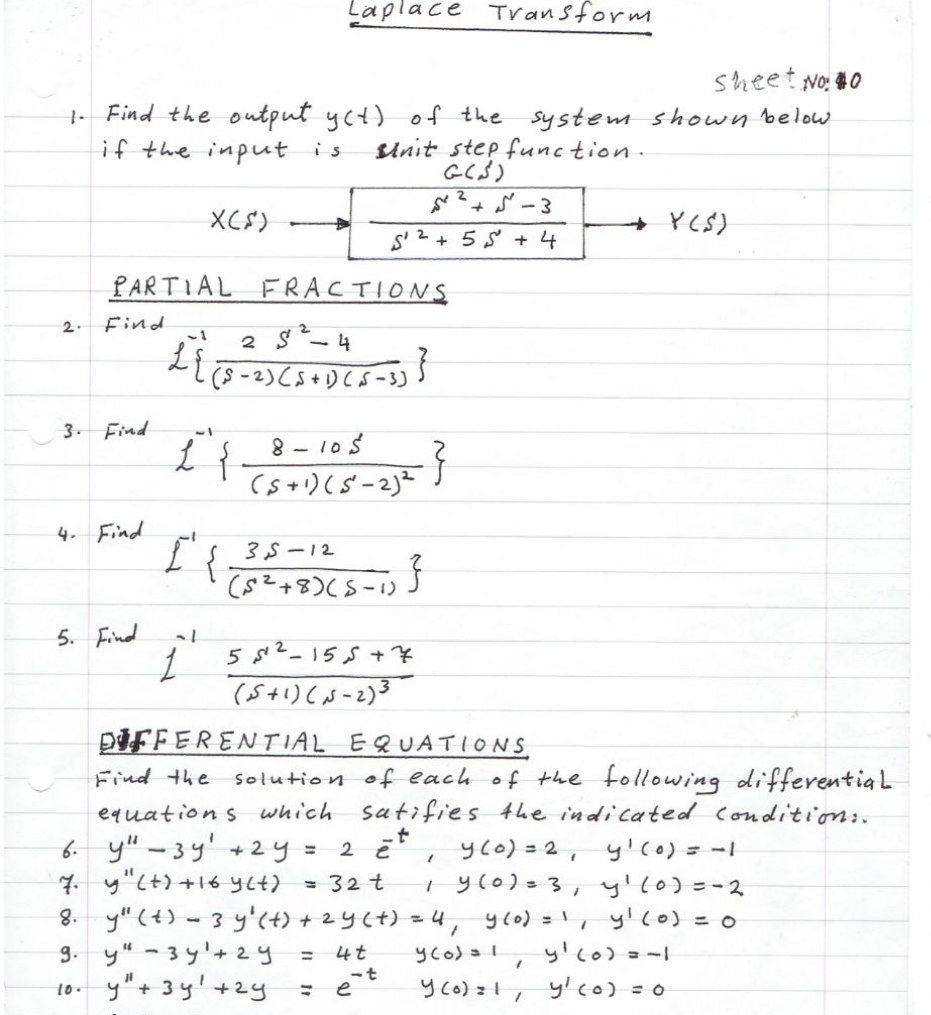 Laplace Transform
Sheet No: 10
1. Find the output y(t) of the system shown below
if the input is unit step function.
G(S)
X(S) → (S² + S - 3) / (S² + 5S + 4) → Y(S)
PARTIAL FRACTIONS
2. Find
L⁻¹{ (2S² - 4) / ((S-2)(S+1)(S-3)) }
3. Find
L⁻¹{ (8 - 10S) / ((S+1)(S-2)²) }
4. Find
L⁻¹{ (3S - 12) / ((S²+8)(S-1)) }
5. Find
L⁻¹ (5S² - 15S + 7) / ((S+1)(S-2)³)
DIFFERENTIAL EQUATIONS
Find the solution of each of the following differential
equations which satifies the indicated conditions.
6. y'' - 3y' + 2y = 2e⁻ᵗ, y(0) = 2, y'(0) = -1
7. y''(t) + 16y(t) = 32t, y(0) = 3, y'(0) = -2
8. y''(t) - 3y'(t) + 2y(t) = 4, y(0) = 1, y'(0) = 0
9. y'' - 3y' + 2y = 4t y(0) = 1, y'(0) = -1
10. y'' + 3y' + 2y = e⁻ᵗ y(0) = 1, y'(0) = 0